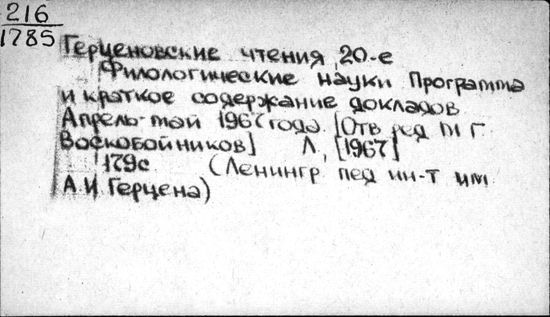 216
1785
Герценовские чтения, 20-е
Филологические науки Программа
и краткое содержание докладов
Апрель-май 1967 года. [Отв ред М Г
Воскобойников] Л, [1967]
179с (Ленингр пед ин-т им
А.И. Герцена)